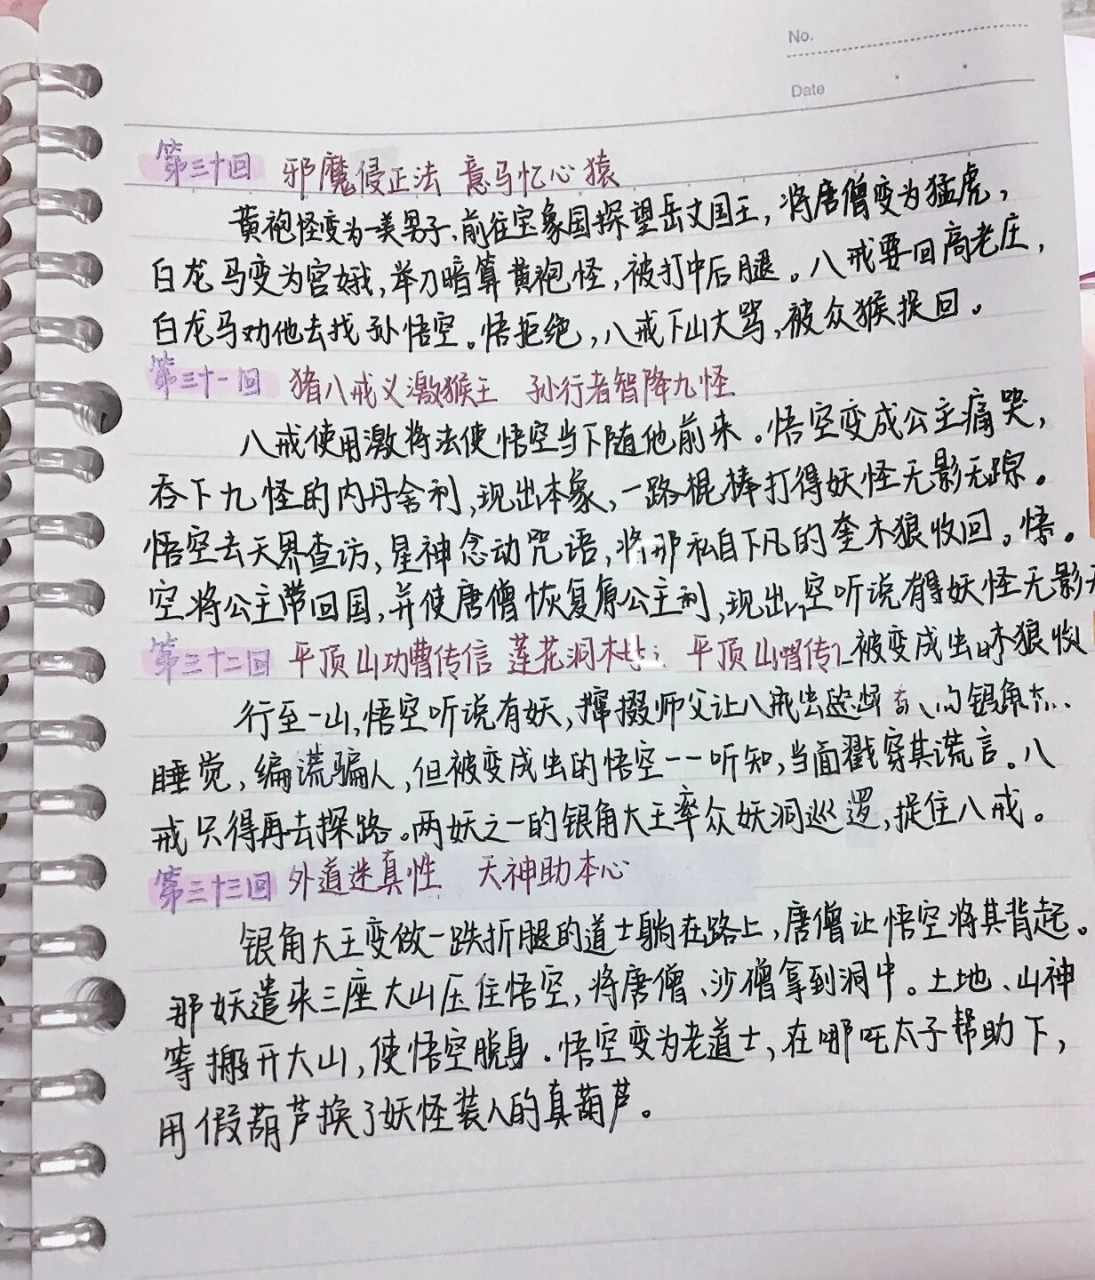 No.
Date
第三十回 邪魔侵正法 意马忆心猿
黄袍怪变为一美男子、前往宝象国探望岳丈国王，将唐僧变为猛虎，
白龙马变为宫娥，举刀暗算黄袍怪，被打中后腿。八戒要回高老庄，
白龙马劝他去找孙悟空。悟拒绝，八戒下山大骂，被众猴捉回。
第三十一回 猪八戒义激猴王 孙行者智降九怪
八戒使用激将法使悟空当下随他前来。悟空变成公主痛哭，
吞下九怪的内丹舍利，现出本象，一路棍棒打得妖怪无影无踪。
悟空去天界查访，星神念动咒语，将那私自下凡的奎木狼收回。悟。
空将公主带回国，并使唐僧恢复原公主利，现出 空听说有得妖怪无影
第三十二回 平顶山功曹传信 莲花洞木 平顶山 传 被变成虫 木狼
行至一山，悟空听说有妖，撺掇师父让八戒 银角
睡觉，编谎骗人，但被变成虫的悟空一一听知，当面戳穿其谎言。八
戒只得再去探路。两妖之一的银角大王率众妖洞巡逻，捉住八戒。
第三十三回 外道迷真性 天神助本心
银角大王变做一跌折腿的道士躺在路上，唐僧让悟空将其背起。
那妖遣来三座大山压住悟空，将唐僧、沙僧拿到洞中。土地、山神
等搬开大山，使悟空脱身。悟空变为老道士，在哪吒太子帮助下，
用假葫芦换了妖怪装人的真葫芦。